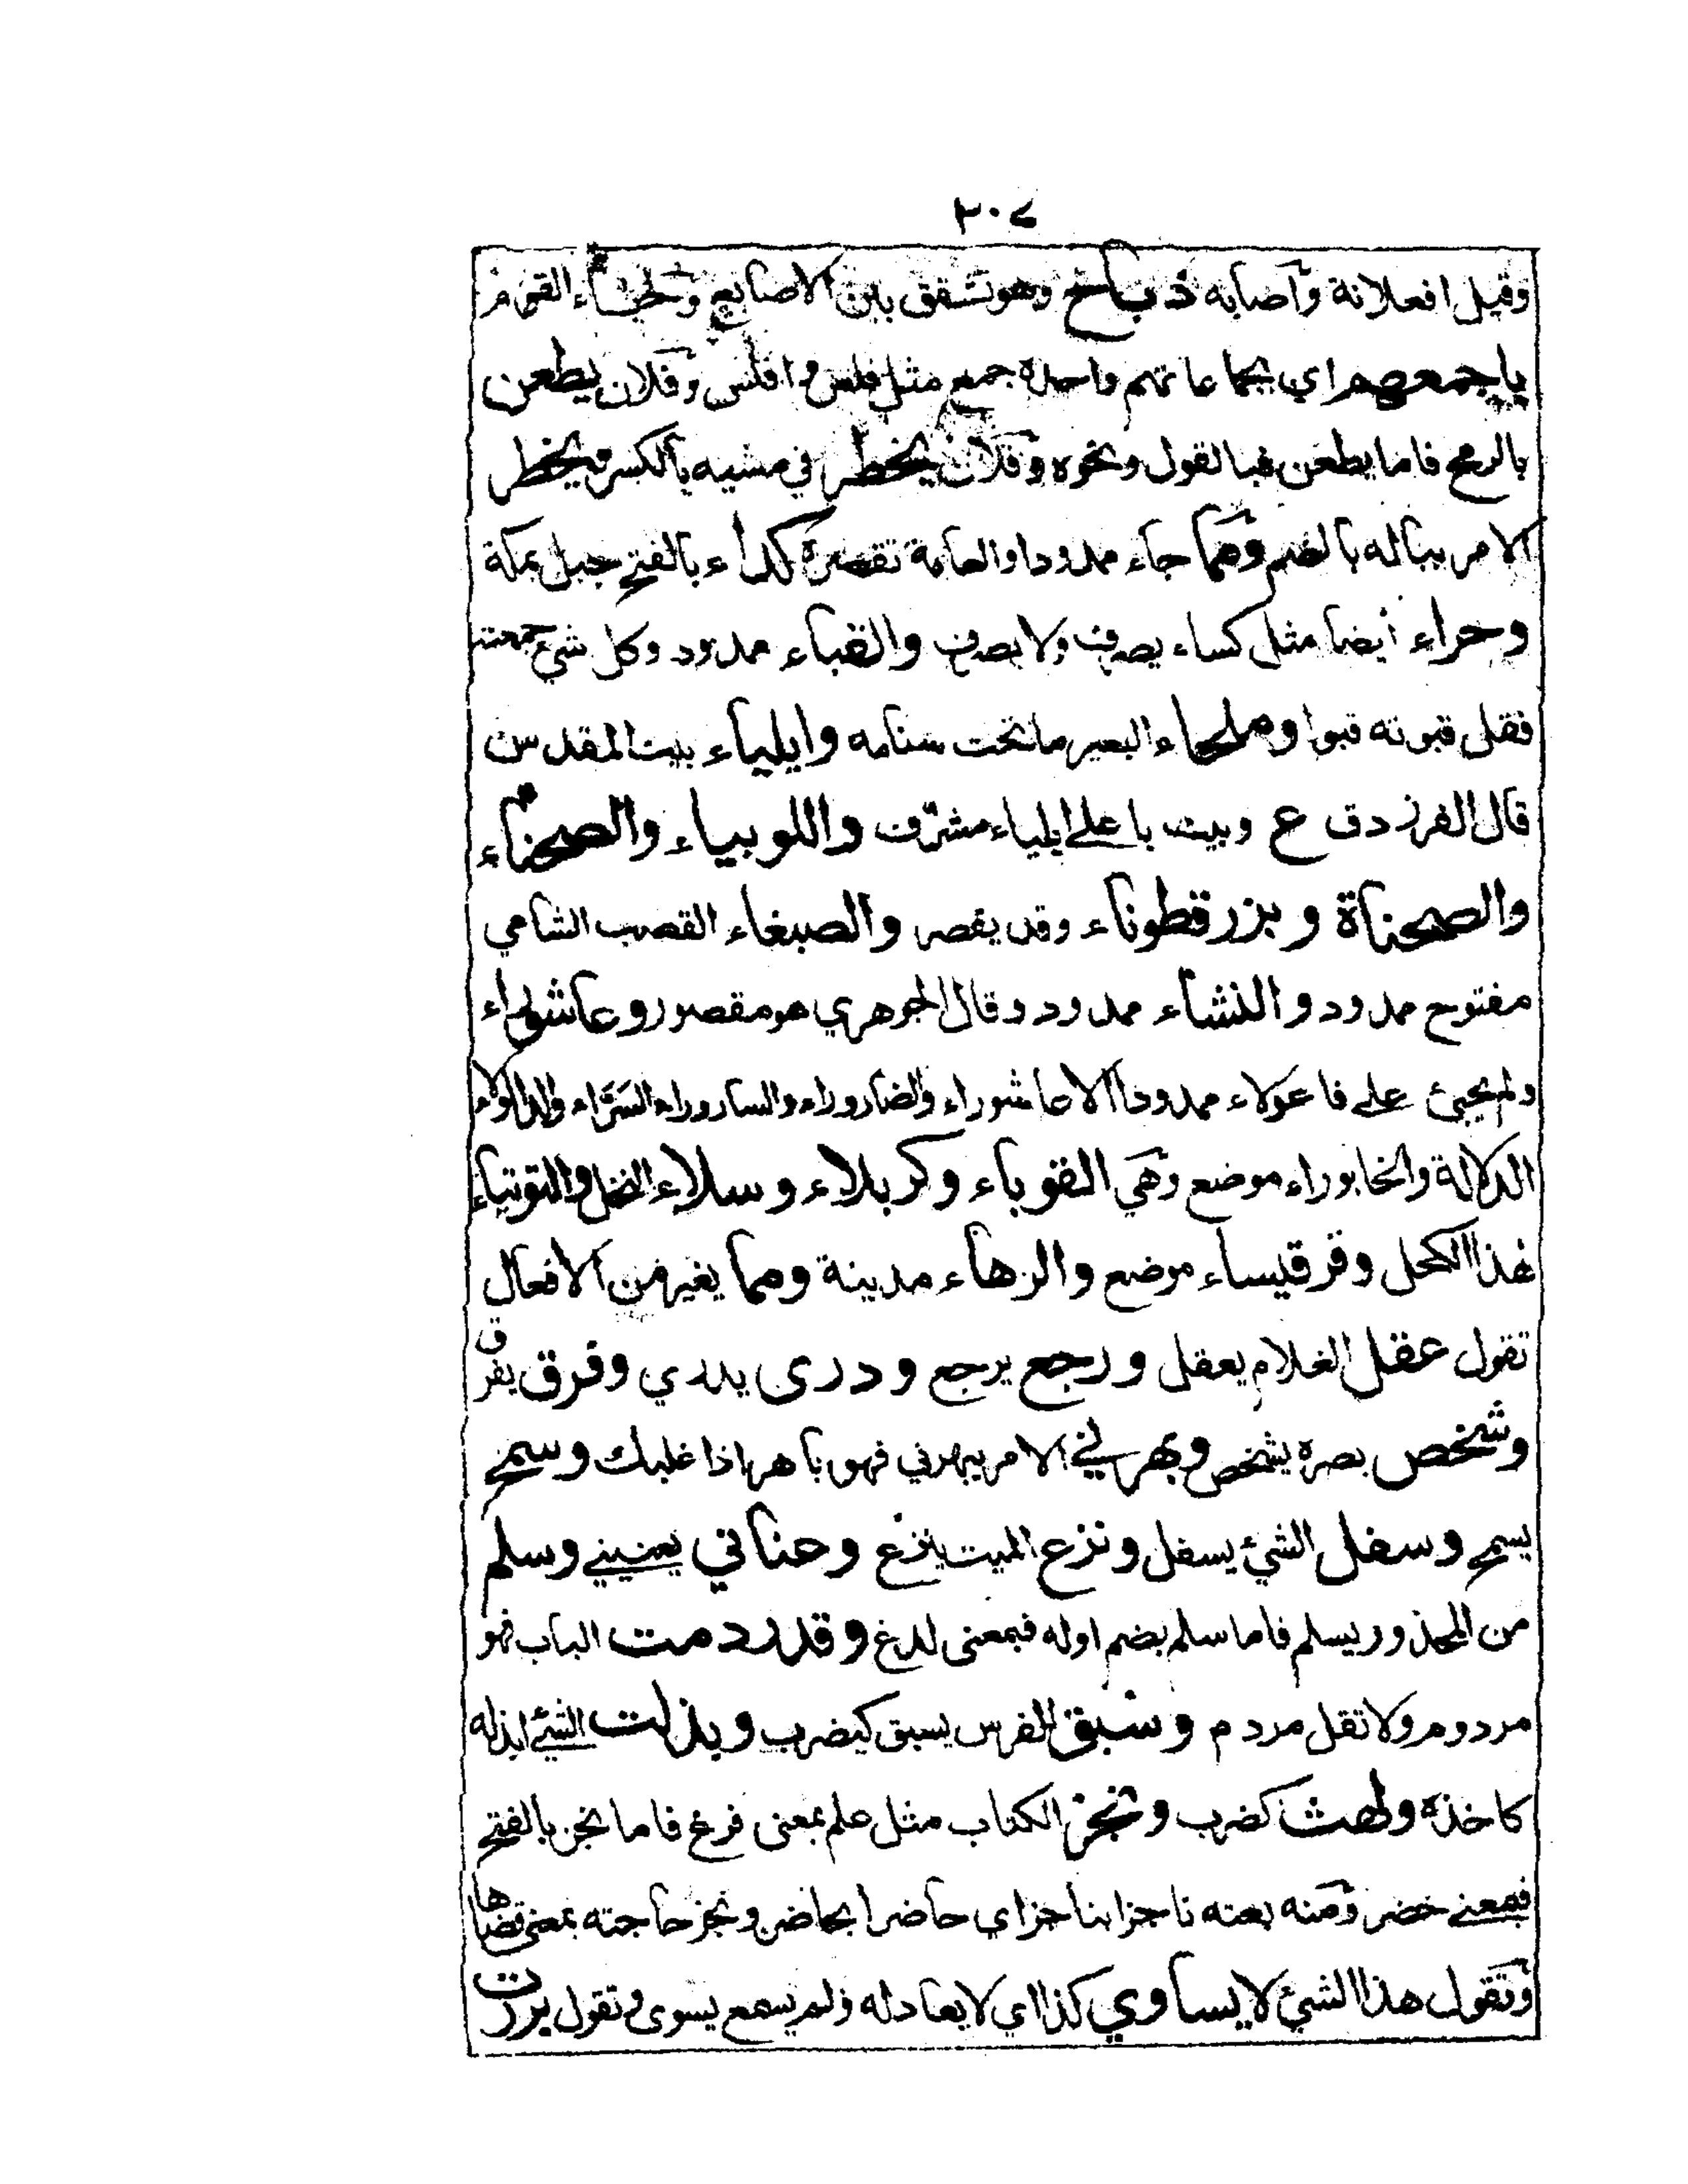 ٣٠٧
وقيل افعلانة وأصابه ذباح وهو تشقق بين الاصابع وجاء القوم
باجمعهم اي بجماعاتهم واحده جمع مثل فلس وافلس وفلان يطعن
بالرمح فاما يطعن فبالقول ونحوه وفلان يخطر في مشيه بالكسر ويخطر
الامر بباله بالضم ومما جاء ممدودا والعامة تقصره كداء بالفتح جبل بمكة
وحراء أيضا مثل كساء يصرف ولا يصرف والقباء ممدود وكل شيء جمعته
فقل قبوته قبوا وملحاء البعير ما تحت سنامه وايلياء بيت المقدس
قال الفرزدق ع وبيت باعلى ايلياء مشرّف واللوبياء والصحناء
والصحناة وبزر قطوناء وقد يقصر والصبغاء القصب الشامي
مفتوح ممدود والنشاء ممدود وقال الجوهري هو مقصور وعاشوراء
ولم يجيئ على فاعولاء ممدودا الا عاشوراء والضاروراء والساروراء السَّرّاء والدالولاء
الدلالة والخابوراء موضع وهي القوباء وكربلاء وسلاء النخل والتوتياء
لهذا الكحل وقرقيساء موضع والرهاء مدينة ومما يغير من الافعال
تقول عقل الغلام يعقل ورجع يرجع ودرى يدري وفرق يفرق
وشخص بصره يشخص وبهرني الامر يبهرني فهو باهر اذا غلبك وسمح
يسمح وسفل الشيئ يسفل ونزع الميت ينزع وعناني يعنيني وسلم
من المحذور يسلم فاما سلم بضم اوله فبمعنى لدغ وقد ردمت الباب فهو
مردوم ولا تقل مردم وسبق الفرس يسبق كيضرب وبذلت الشيئ ابذله
كاخذه ولهث كضرب ونجز الكتاب مثل علم بمعنى فرغ فاما نجز بالفتح
فبمعنى حضر ومنه بعته ناجزا بناجز اي حاضرا بحاضر ونجز حاجته بمعنى قضاها
وتقول هذا الشيئ لا يساوي كذا اي لا يعادله ولم يسمع يسوى وتقول بررت